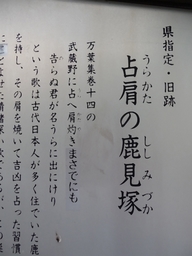 県指定・旧跡
うらかた ししみづか
占肩の鹿見塚
万葉集巻十四の
武蔵野に占へ肩灼きまさでにも
告らぬ君が名うらに出にけり
という歌は古代日本人が多く住でいた鹿
を持し、その肩を焼いて吉凶を占った習慣